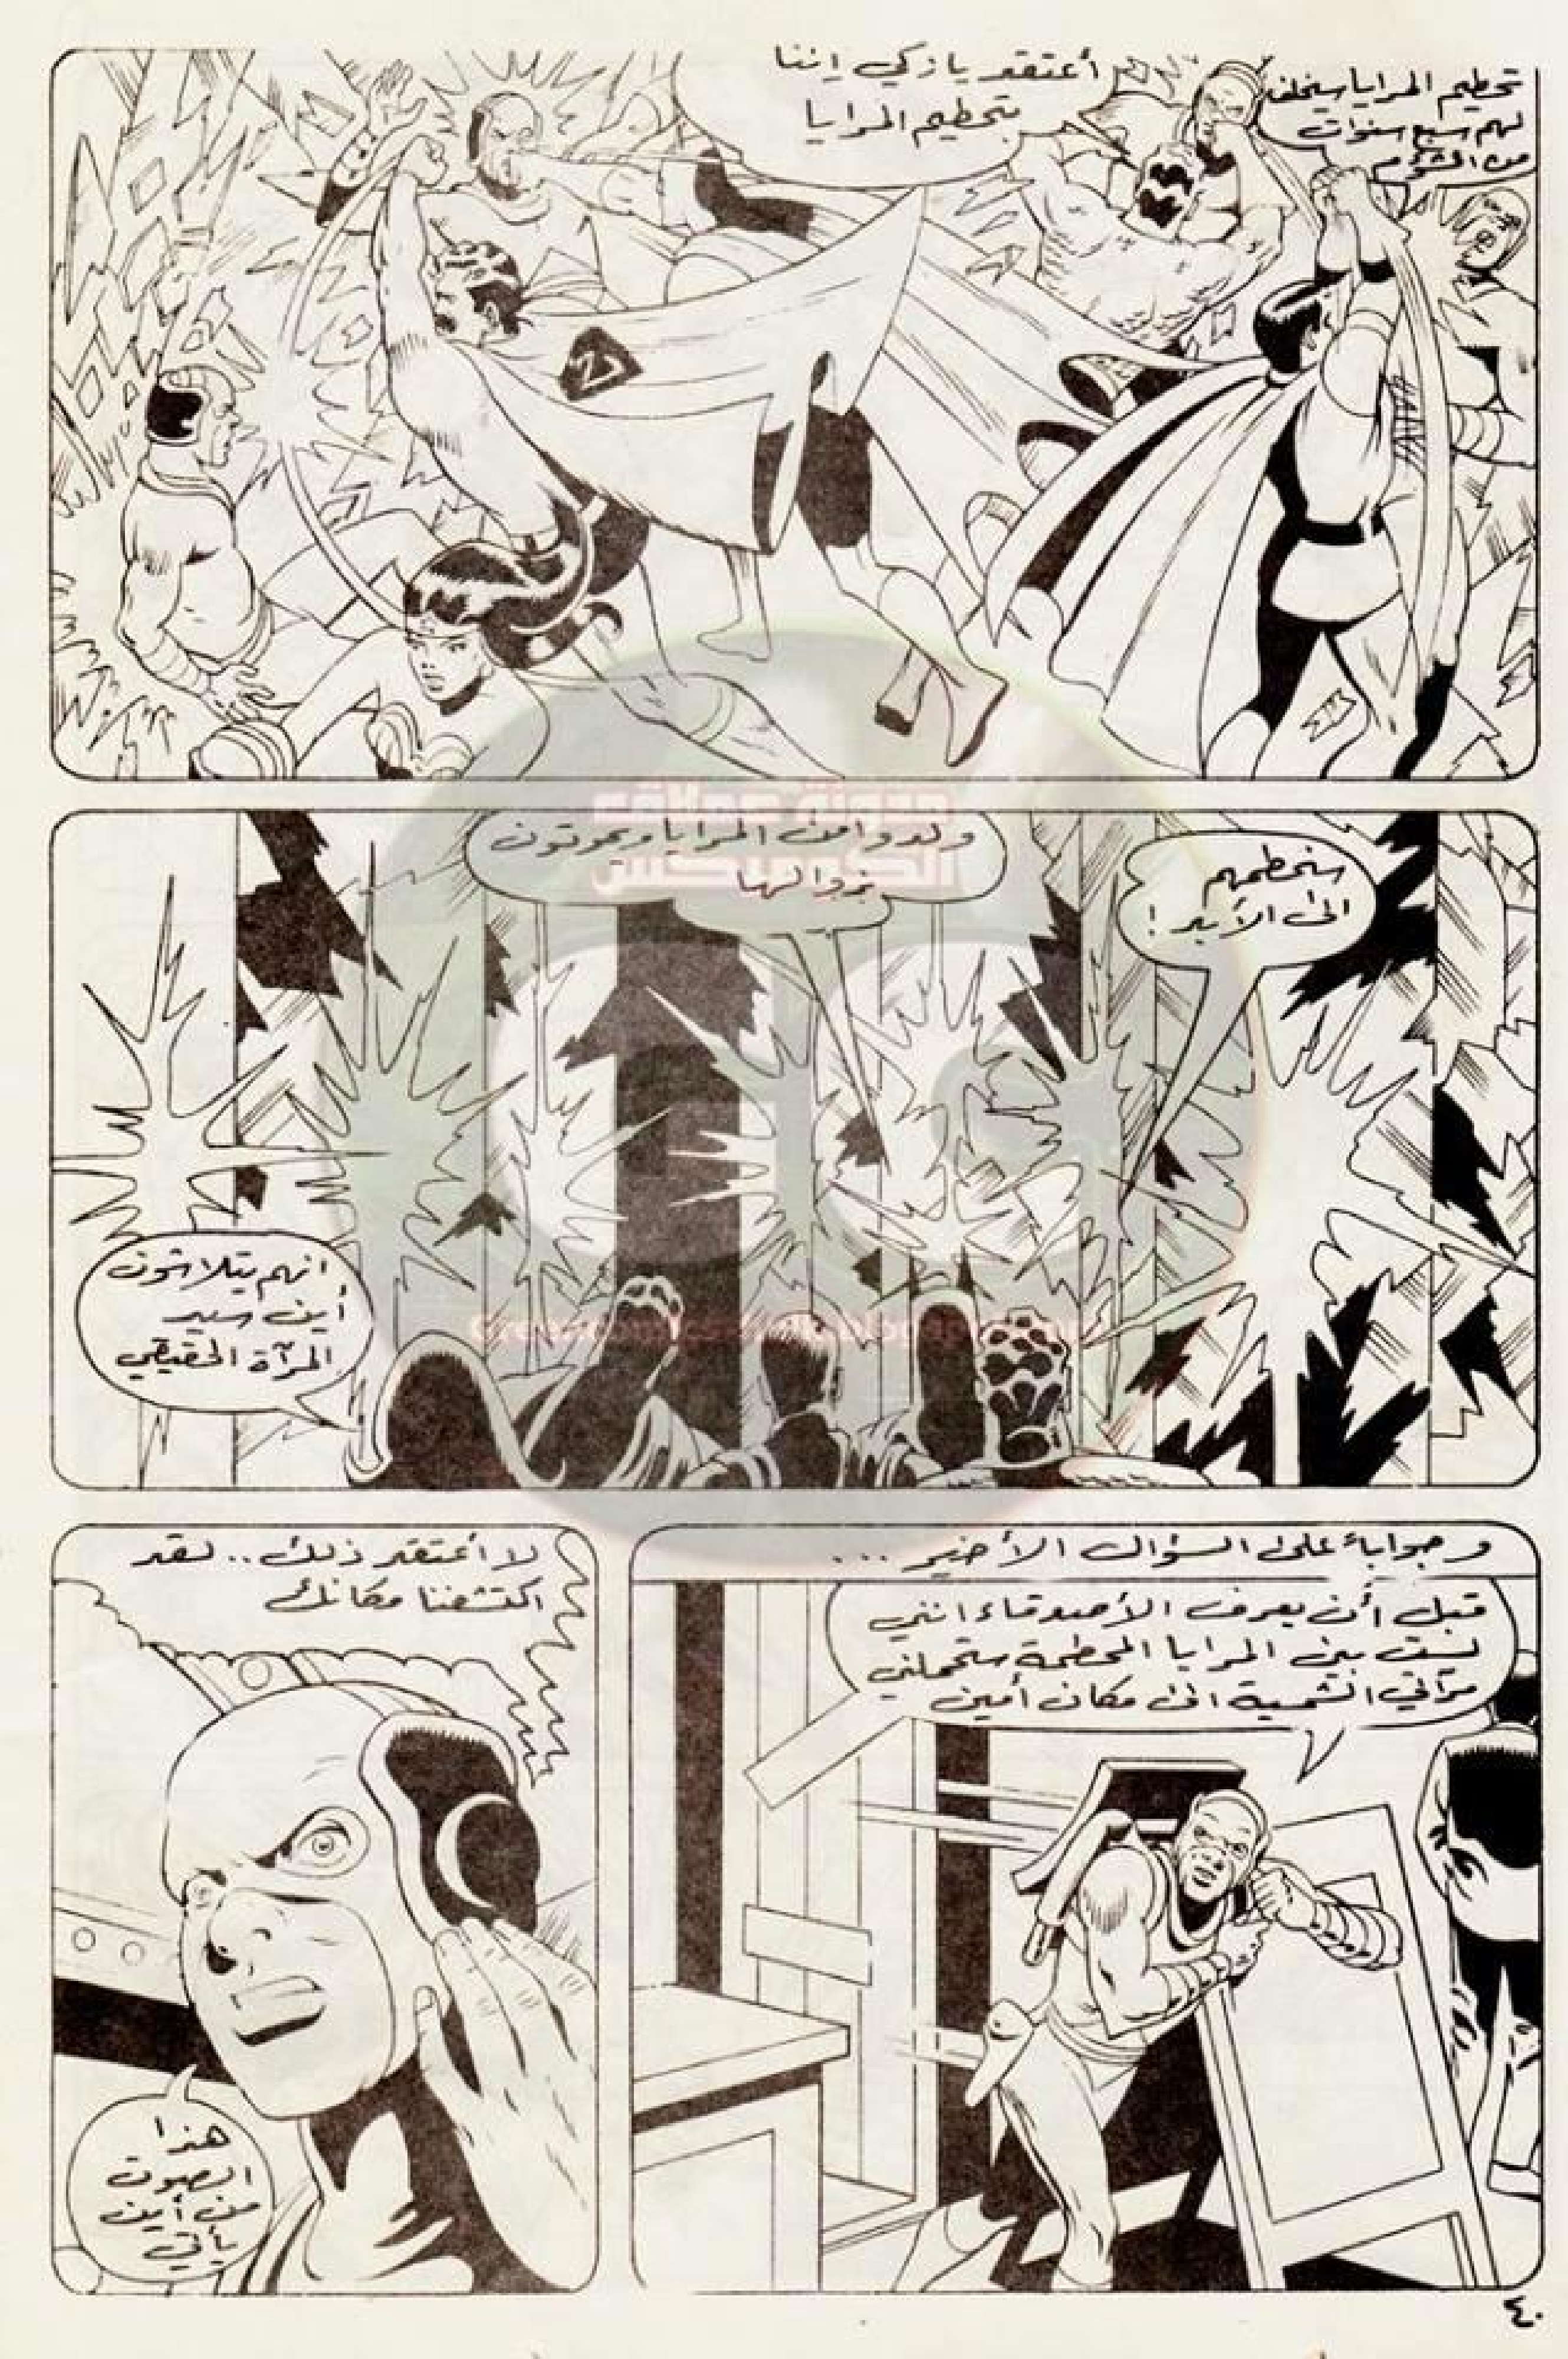 تحطيم المرايا سيخلف
لهم سبع سنوات
من الشؤم
أعتقد يا زكي إننا
بتحطيم المرايا
سنحطمهم
الى الأبد !
ولدوا من المرايا ويموتون
بزوالها
انهم يتلاشون
أين سيد
المرآة الحقيقي
وجواباً على السؤال الأخير ...
قبل أن يعرف الأصدقاء انني
لست بين المرايا المحطمة ستحملني
مرآتي الشمسية الى مكان أمين
لا أعتقد ذلك .. لقد
اكتشفنا مكانك
هذا
الصوت
من أين
يأتي
مدونة عملاق
الكوميكس
٤٠